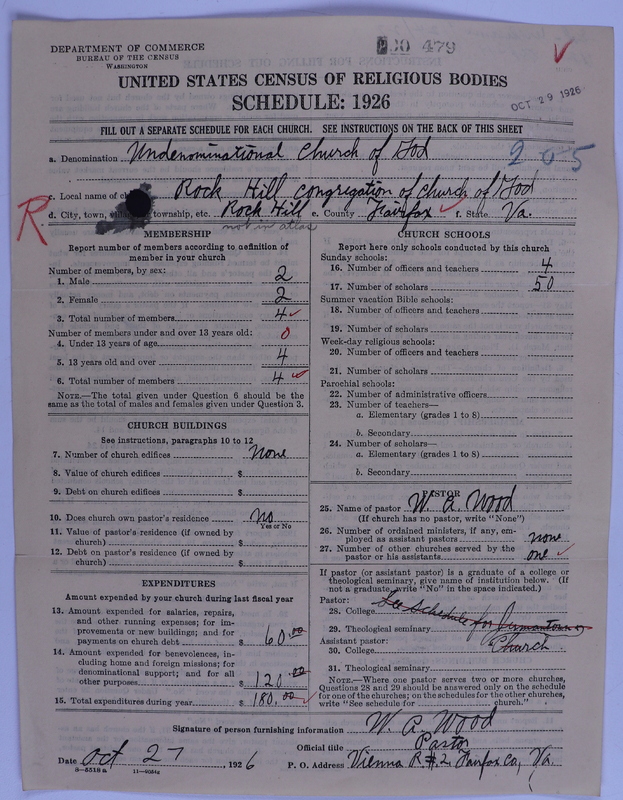 DEPARTMENT OF COMMERCE
BUREAU OF THE CENSUS
WASHINGTON
479
OCT 29 1926
UNITED STATES CENSUS OF RELIGIOUS BODIES
SCHEDULE: 1926
FILL OUT A SEPARATE SCHEDULE FOR EACH CHURCH. SEE INSTRUCTIONS ON THE BACK OF THIS SHEET
a. Denomination Undenominational Church of God 205
c. Local name of ch Rock Hill congregation of church of God
R
d. City, town, township, etc. Rock Hill e. County Fairfax f. State Va.
not in atlas
MEMBERSHIP
Report number of members according to definition of
member in your church
Number of members, by sex:
1. Male 2
2. Female 2
3. Total number of members 4
Number of members under and over 13 years old:
4. Under 13 years of age 0
5. 13 years old and over 4
6. Total number of members 4
NOTE.—The total given under Question 6 should be
same as the total of males and females given under Question 3.
CHURCH BUILDINGS
See instructions, paragraphs 10 to 12
7. Number of church edifices None
8. Value of church edifices $
9. Debt on church edifices $
10. Does church own pastor's residence No
Yes or No
11. Value of pastor's residence (if owned by
church) $
12. Debt on pastor's residence (if owned by
church) $
EXPENDITURES
Amount expended by your church during last fiscal year
13. Amount expended for salaries, repairs,
and other running expenses; for im-
provements or new buildings; and for
payments on church debt $ 60.00
14. Amount expended for benevolences, in-
cluding home and foreign missions; for
denominational support; and for all
other purposes $ 120.00
15. Total expenditures during year $ 180.00
CHURCH SCHOOLS
Report here only schools conducted by this church
Sunday schools:
16. Number of officers and teachers 4
17. Number of scholars 50
Summer vacation Bible schools:
18. Number of officers and teachers
19. Number of scholars
Week-day religious schools:
20. Number of officers and teachers
21. Number of scholars
Parochial schools:
22. Number of administrative officers
23. Number of teachers—
a. Elementary (grades 1 to 8)
b. Secondary
24. Number of scholars—
a. Elementary (grades 1 to 8)
b. Secondary
PASTOR
25. Name of pastor W. A. Wood
(If church has no pastor, write "None")
26. Number of ordained ministers, if any, em-
ployed as assistant pastors none
27. Number of other churches served by the
pastor or his assistants one
If pastor (or assistant pastor) is a graduate of a college or
theological seminary, give name of institution below. (If
not a graduate, write "No" in the space indicated.)
Pastor:
28. College See Schedule for Jermantown
29. Theological seminary
Assistant pastor: Church
30. College
31. Theological seminary
NOTE.—Where one pastor serves two or more churches,
Questions 28 and 29 should be answered only on the schedule
for one of the churches; on the schedules for the other churches,
write "See schedule for church."
Signature of person furnishing information W. A. Wood
Official title Pastor
Date Oct 27, 1926 P. O. Address Vienna R.#.2, Fairfax co, Va.
8-5518 a 11-9054